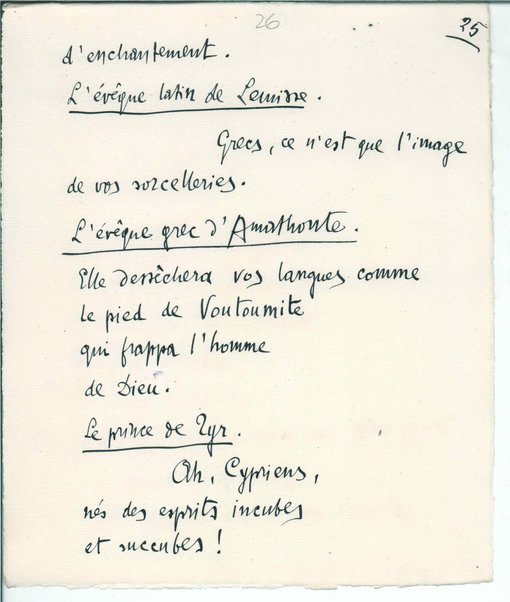 26
25
d'enchantement.
L'évêque latin de Lemisse.
Grecs, ce n'est que l'image
de vos sorcelleries.
L'évêque grec d'Amathonte.
Elle dessèchera vos langues comme
le pied de Voutoumite
qui frappa l'homme
de Dieu.
Le prince de Tyr.
Ah, Cypriens,
nés des esprits incubes
et succubes !